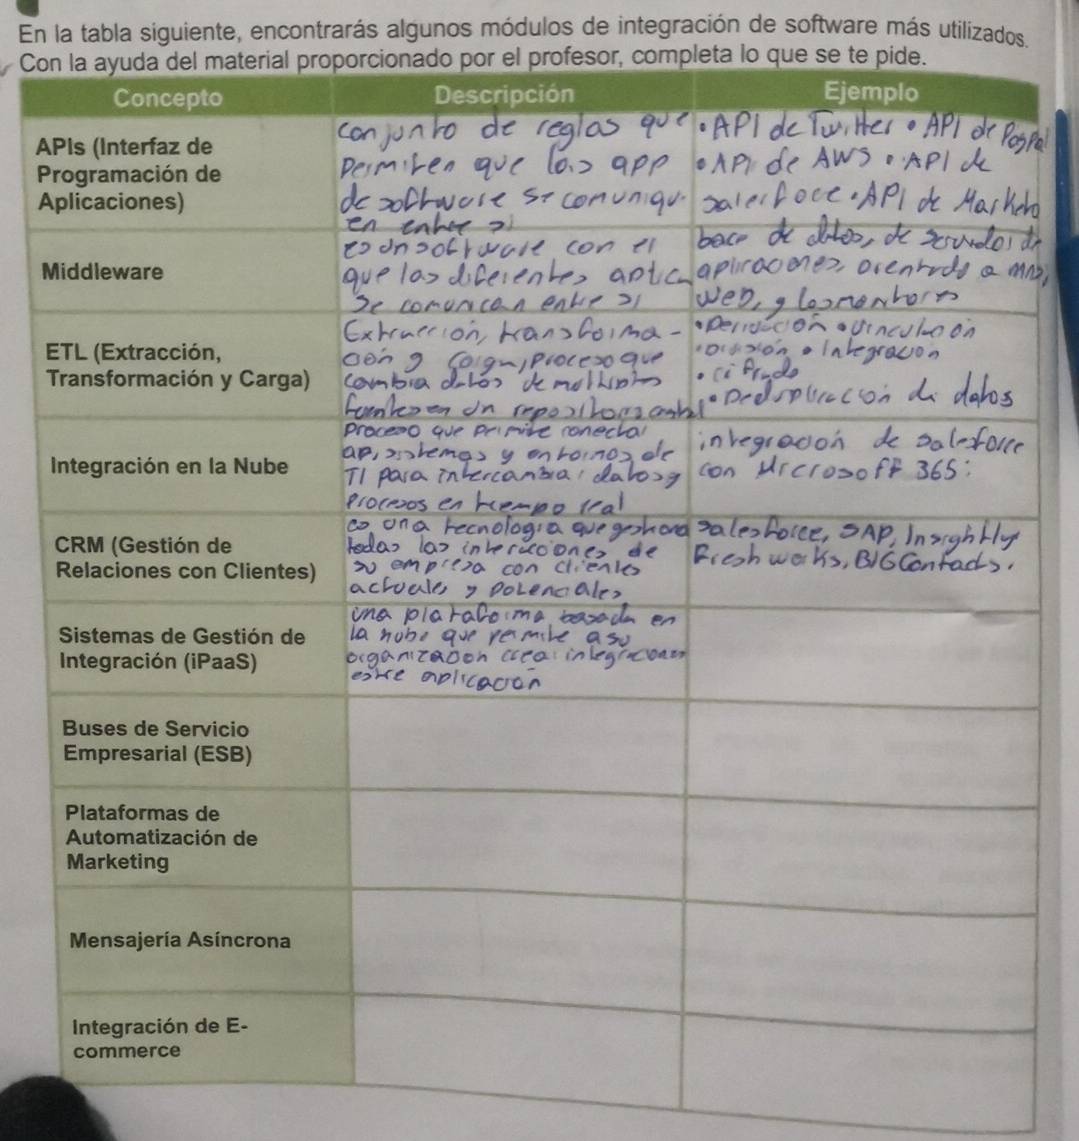 En la tabla siguiente, encontrarás algunos módulos de integración de software más utilizados.
Con la ayuda del material proporcionado por el profesor, completa lo que se te pide.
Concepto Descripción Ejemplo
APIs (Interfaz de
Programación de
Aplicaciones)
conjunto de reglas que
permiten que las app
de software se comuniqu
en entre si
• API de Twitter • API de
• API de AWS • API de
API de
Middleware
es un software con el
que las diferentes
se comunican entre si
de datos, de
web, y
ETL (Extracción,
Transformación y Carga)
Extracción, transforma-
y proceso que
cambia datos de
en un
• Integración
de datos
Integración en la Nube
proceso que conectar
y entornos de
TI para intercambiar datos y
procesos en tiempo real
integración de salesforce
con Microsoft 365:
CRM (Gestión de
Relaciones con Clientes)
es una tecnología que
todas las de
su empresa con clientes
actuales y potenciales
salesforce, SAP, Insightly
Freshworks, BIGContacts.
Sistemas de Gestión de
Integración (iPaaS)
una plataforma basada en
la nube que permite a su
crear
aplicación
Buses de Servicio
Empresarial (ESB)
Plataformas de
Automatización de
Marketing
Mensajería Asíncrona
Integración de E-
commerce